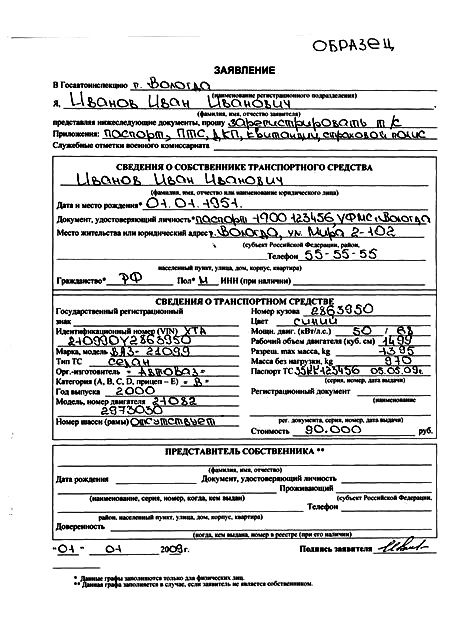 ОБРАЗЕЦ
ЗАЯВЛЕНИЕ
В Госавтоинспекцию г. Вологда
(наименование регистрационного подразделения)
Я, Иванов Иван Иванович
(фамилия, имя, отчество заявителя)
представляя нижеследующие документы, прошу зарегистрировать т/с
Приложения: паспорт, ПТС, ДКП, квитанции, страховой полис
Служебные отметки военного комиссариата
СВЕДЕНИЯ О СОБСТВЕННИКЕ ТРАНСПОРТНОГО СРЕДСТВА
Иванов Иван Иванович
(фамилия, имя, отчество или наименование юридического лица)
Дата и место рождения* 01.01.1951.
Документ, удостоверяющий личность* паспорт 1900 123456 УФМС г. Вологда
Место жительства или юридический адрес г. Вологда, ул. Мира 2-102
(субъект Российской Федерации, район,
Телефон 55-55-55
населенный пункт, улица, дом, корпус, квартира)
Гражданство* РФ Пол* М ИНН (при наличии)
СВЕДЕНИЯ О ТРАНСПОРТНОМ СРЕДСТВЕ
Государственный регистрационный знак
Идентификационный номер (VIN) ХТА
210990Y2863950
Марка, модель ВАЗ-21099
Тип ТС седан
Орг.-изготовитель «АвтоВАЗ»
Категория (А, В, С, D, прицеп – Е) «В»
Год выпуска 2000
Модель, номер двигателя 21083
2973030
Номер шасси (рамы) отсутствует
Номер кузова 2863950
Цвет синий
Мощн. двиг. (кВт/л.с.) 50 / 68
Рабочий объем двигателя (куб. см) 1499
Разреш. max масса, kg 1395
Масса без нагрузки, kg 970
Паспорт ТС 123456 05.05.09г.
(серия, номер, дата выдачи)
Регистрационный документ
(наименование
рег. документа, серия, номер, дата выдачи)
Стоимость 90.000 руб.
ПРЕДСТАВИТЕЛЬ СОБСТВЕННИКА **
(фамилия, имя, отчество)
Дата рождения Документ, удостоверяющий личность
Проживающий
(наименование, серия, номер, когда, кем выдан) (субъект Российской Федерации,
Телефон
район, населенный пункт, улица, дом, корпус, квартира)
Доверенность
(когда, кем выдана, номер в реестре (при его наличии)
"01" 01 2009 г. Подпись заявителя
* Данные графы заполняются только для физических лиц.
** Данная графа заполняется в случае, если заявитель не является собственником.